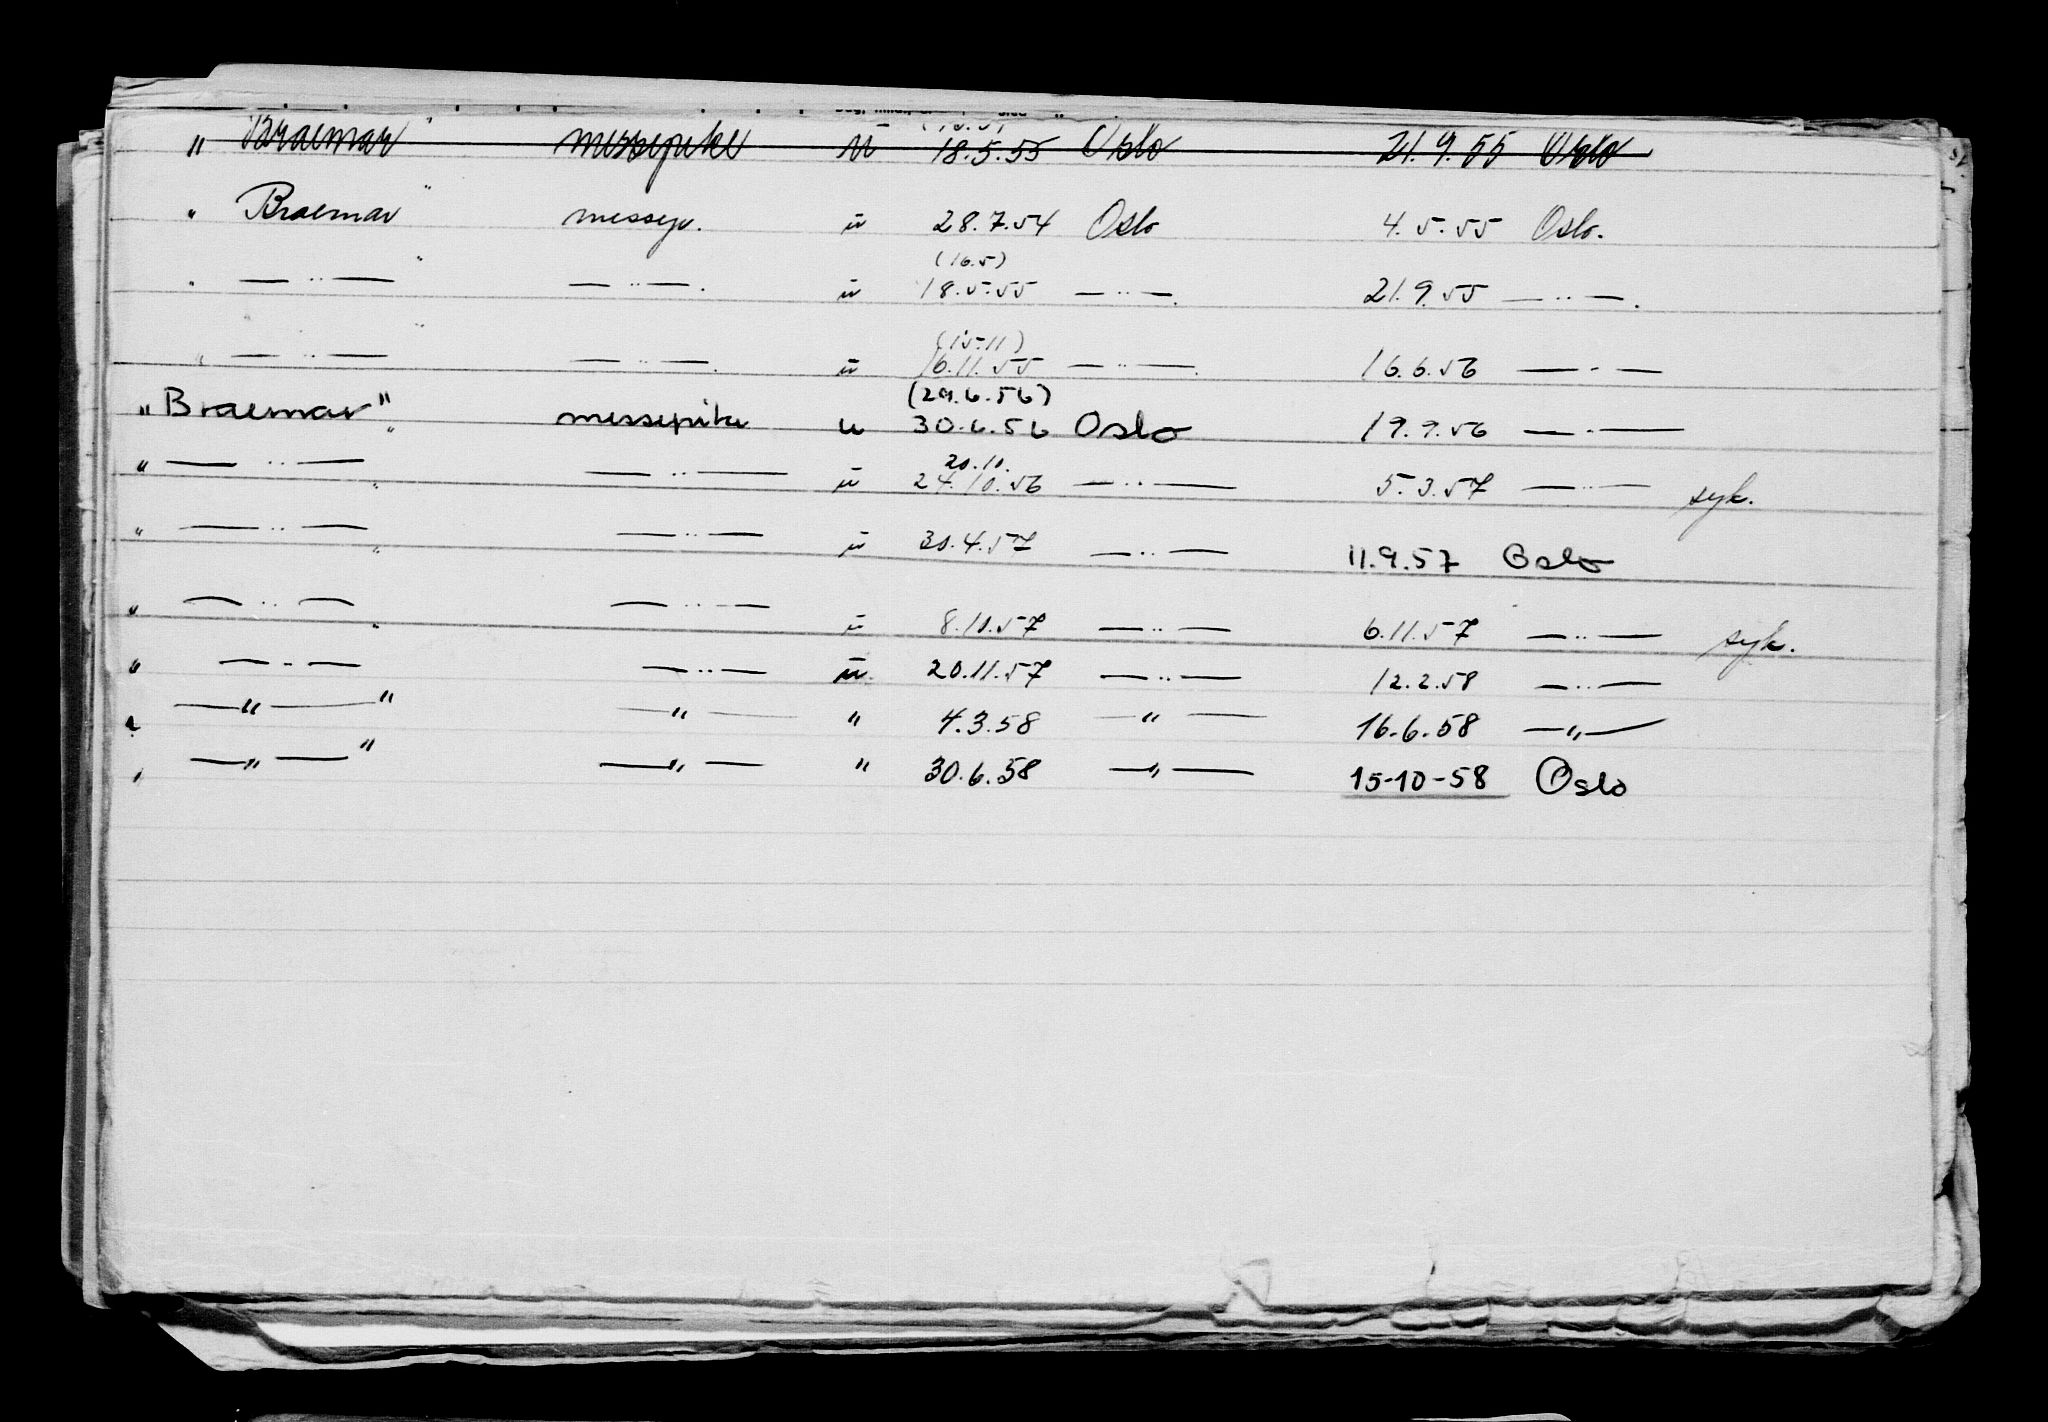 " Braemar " messepike u (16.5) 18.5.55 Oslo 21.9.55 Oslo
" Braemar " messep. u 28.7.54 Oslo 4.5.55 Oslo.
(16.5)
" — .. — " — .. —. u 18.5.55 — .. —. 21.9.55 — .. —.
(15-11)
" — .. — " — .. —. u 16.11.55 — .. —. 16.6.56 — - —
(29.6.56)
"Braemar" messepike u 30.6.56 Oslo 19.9.56 — - —
20.10.
" — .. — " — .. — u 24.10.56 — .. — 5.3.57 — .. — syk.
" — .. — " — .. — u 30.4.57 — .. — 11.9.57 Oslo
" — .. — " — .. — u 8.10.57 — .. — 6.11.57 — .. — syk.
" — - — — .. — u. 20.11.57 — .. — 12.2.58 — .. —
" — " — " — " — " 4.3.58 — " — 16.6.58 — " —
" — " — " — " — " 30.6.58 — " — 15-10-58 Oslo